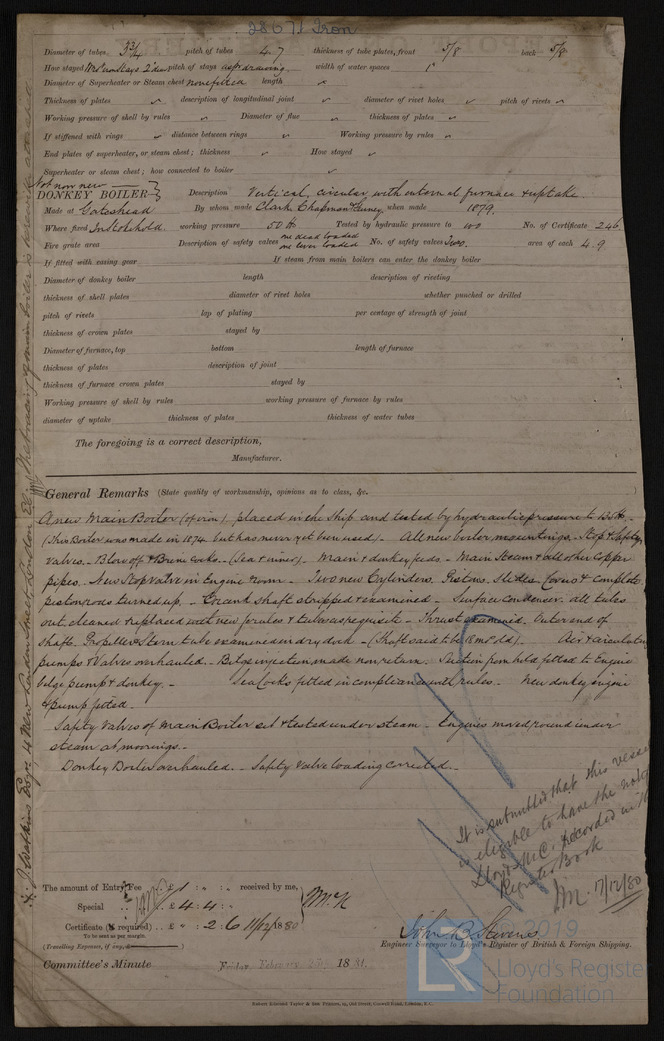 28071 Iron
Diameter of tubes 3 3/4 pitch of tubes 4.7 thickness of tube plates, front 5/8 back 5/8
How stayed pitch of stays as pr drawing width of water spaces 1"
Diameter of Superheater or Steam chest none fitted length
Thickness of plates description of longitudinal joint diameter of rivet holes pitch of rivets
Working pressure of shell by rules Diameter of flue thickness of plates
If stiffened with rings distance between rings Working pressure by rules
End plates of superheater, or steam chest; thickness How stayed
Superheater or steam chest; how connected to boiler
Not now new
DONKEY BOILER— Description Vertical, circular, with internal furnace & uptake
Made at Gateshead By whom made Clark Chapman & Gurney when made 1879.
Where fixed In Stokehold. working pressure 50 lb Tested by hydraulic pressure to 100 No. of Certificate 246
Fire grate area Description of safety valves one dead loaded one lever loaded No. of safety valves Two. area of each 4.9
If fitted with easing gear If steam from main boilers can enter the donkey boiler
Diameter of donkey boiler length description of riveting
thickness of shell plates diameter of rivet holes whether punched or drilled
pitch of rivets lap of plating per centage of strength of joint
thickness of crown plates stayed by
Diameter of furnace, top bottom length of furnace
thickness of plates description of joint
thickness of furnace crown plates stayed by
Working pressure of shell by rules working pressure of furnace by rules
diameter of uptake thickness of plates thickness of water tubes
The foregoing is a correct description,
Manufacturer.
General Remarks (State quality of workmanship, opinions as to class, &c.
A new Main Boiler (of iron) placed in the Ship and tested by hydraulic pressure to 135 lb.
(This Boiler was made in 1874 but has never yet been used) - All new boiler mountings. Stop & Safety
Valves. Blow off & Brine Cocks. - (Sea & inner). - Main & donkey feeds. - Main Steam & all other Copper
pipes. - New Stop Valve in Engine room. - Two new Cylinders. Pistons. Slides. Covers & complete
piston rods turned up. - Crank shaft stripped & examined. - Surface Condenser all tubes
out cleaned & replaced with new ferules & tubes as requisite. - Thrust examined. Outer end of
shaft. Propeller & Stern tube examined in dry dock - (Shaft said to be 18 mos old). Air & circulating
pumps & Valves overhauled. - Bilge injection made non return. Suction from hold fitted to Engine
bilge pump & donkey. - Sea Cocks fitted in compliance with rules. - New donkey engine
& pump fitted. -
Safety Valves of Main Boiler set & tested under steam - Engines moved round under
steam at moorings. -
Donkey Boiler overhauled. - Safety Valve loading corrected. -
It is submitted that this vessel
is eligible to have the notification
Lloyd's M.C. recorded in the
Register Book
17/12/80
The amount of Entry Fee .. £ 1 : " : " received by me,
Special .. £ 4 : 4 : "
Certificate (if required) .. £ " : 2 : 6 11/12/1880
To be sent as per margin.
(Travelling Expenses, if any, £
John B Stevens
Engineer Surveyor to Lloyd's Register of British & Foreign Shipping.
Committee's Minute Friday February 18 81.
2019
LR
Lloyd's Register
Foundation